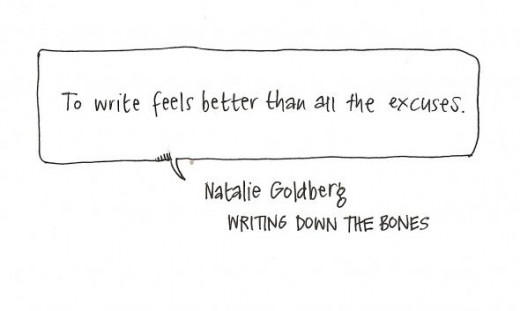 To write feels better than all the excuses.
Natalie Goldberg
WRITING DOWN THE BONES